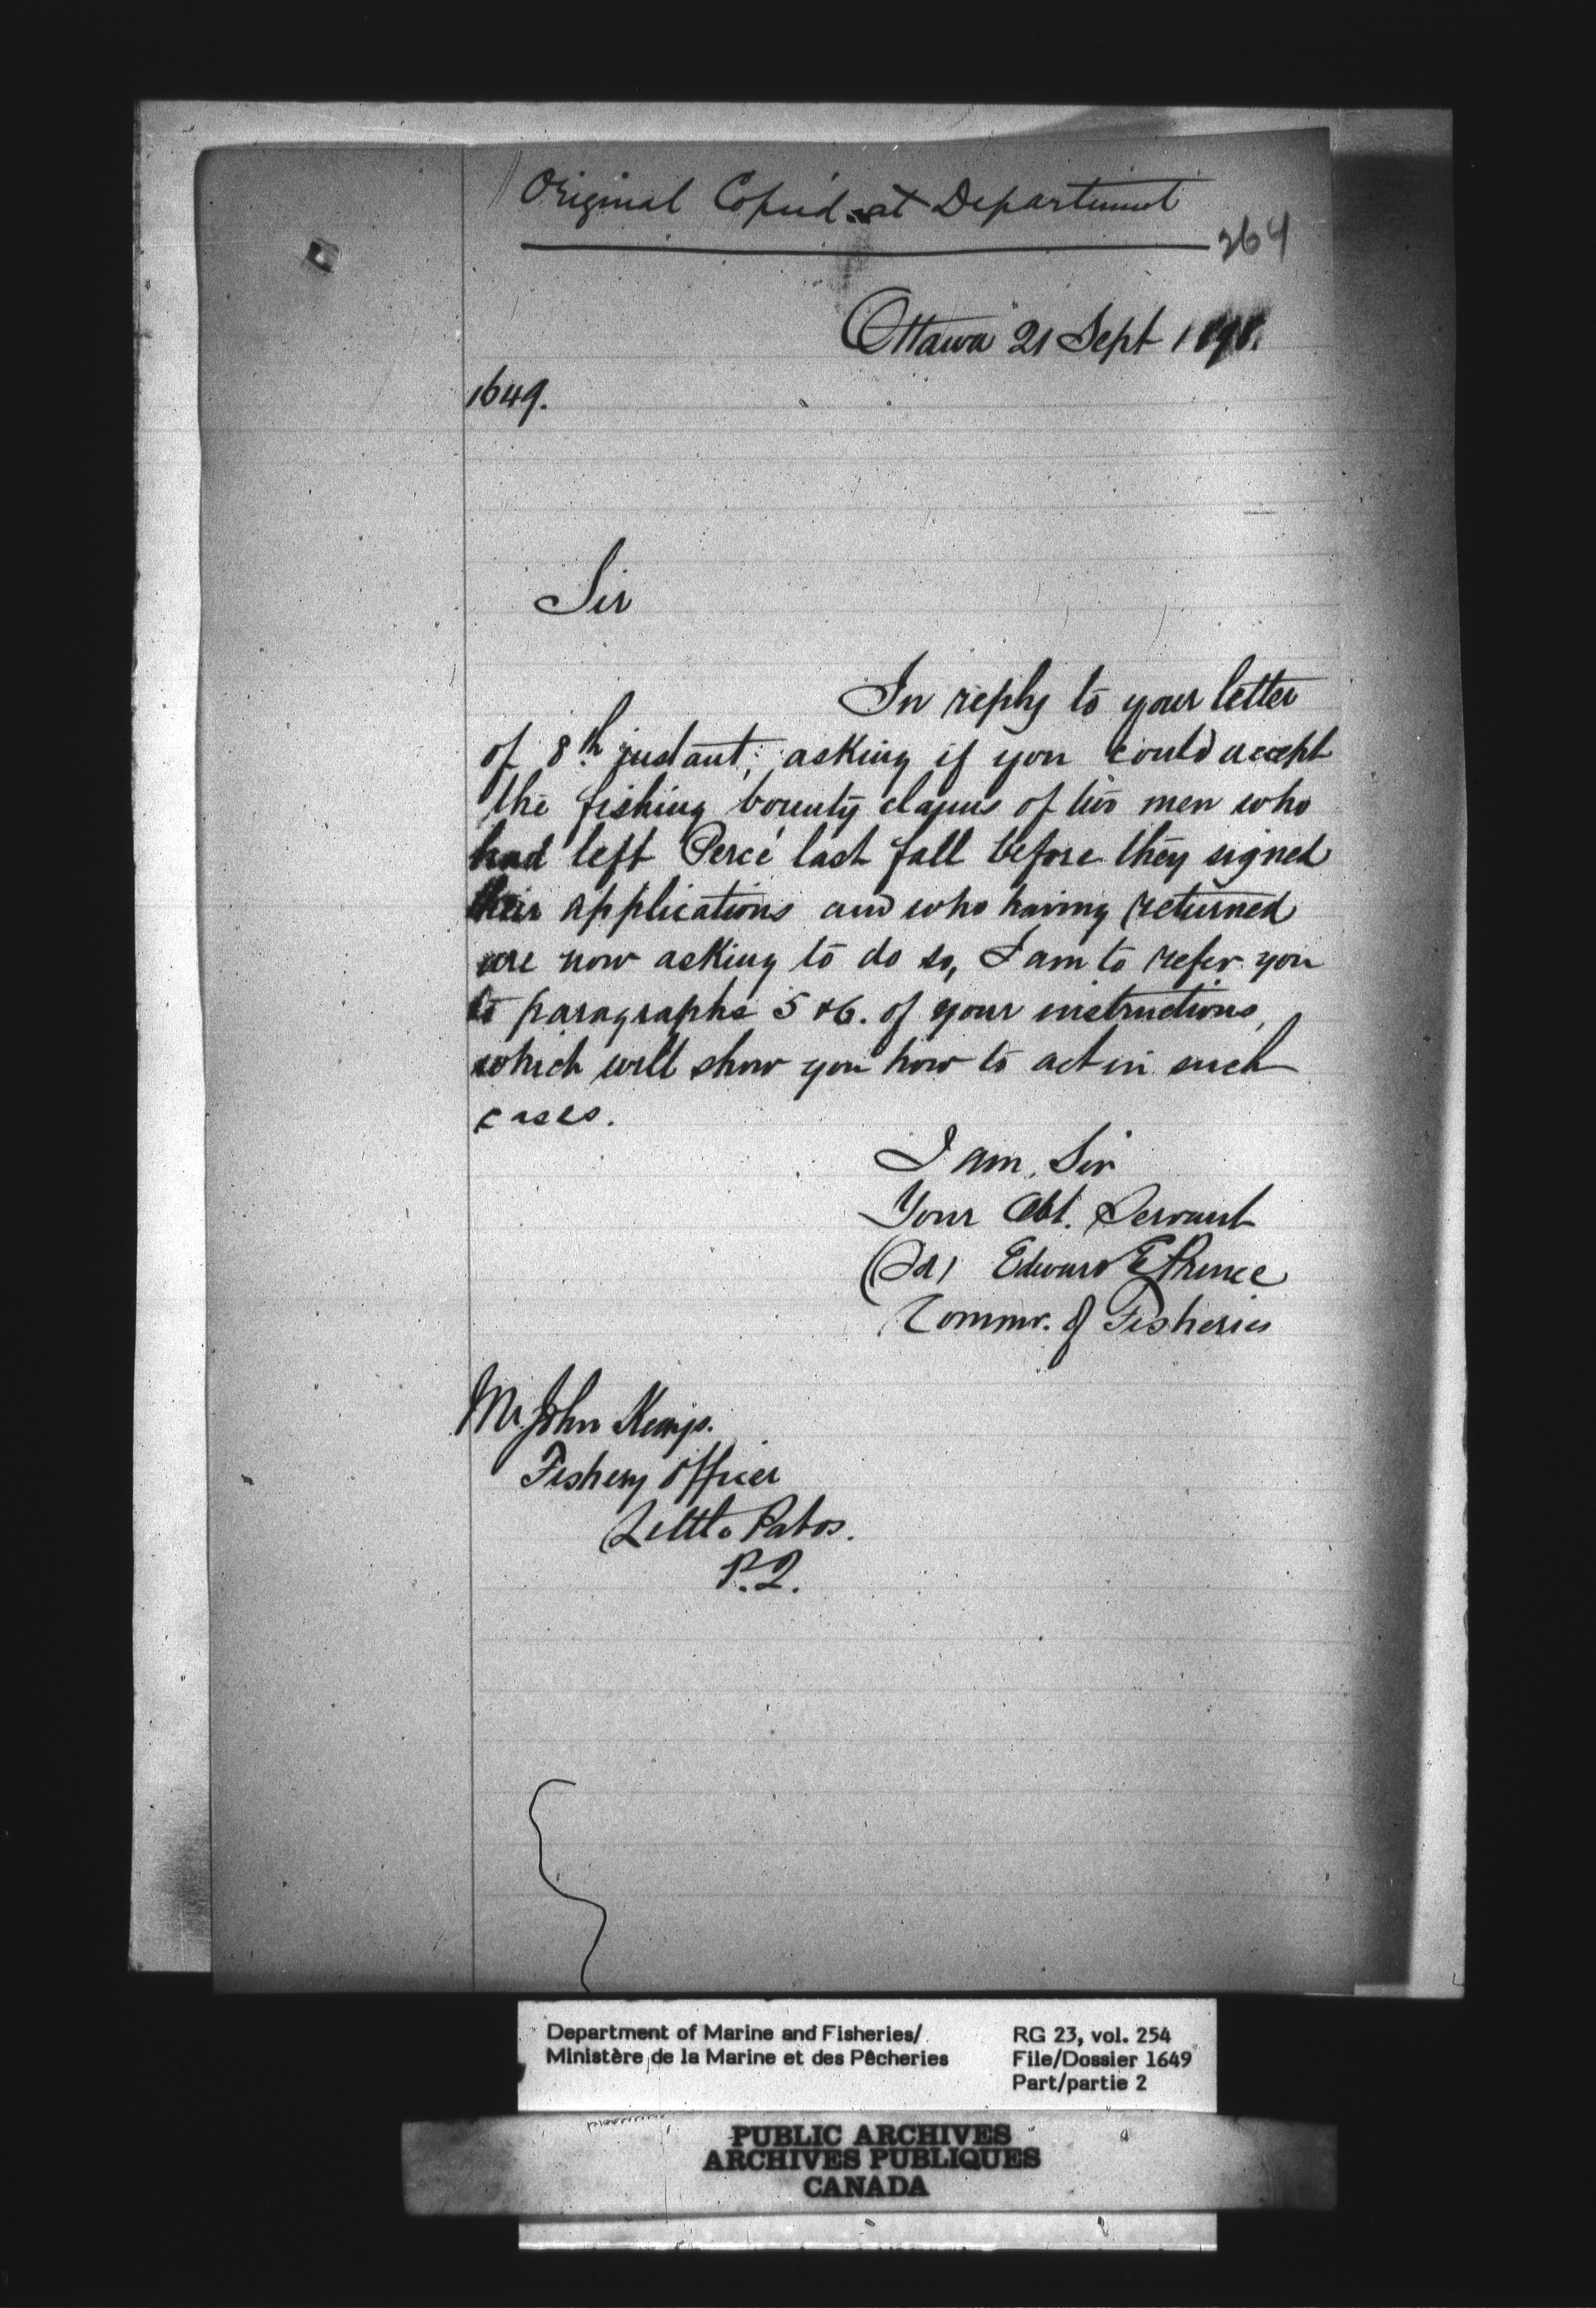 Original Copied at Department
264
Ottawa 21 Sept 1898.
1649.
Sir
In reply to your letter
of 8th instant, asking if you could accept
the fishing bounty claims of two men who
had left Percé last fall before they signed
their applications and who having returned
are now asking to do so, I am to refer you
to paragraphs 5 & 6. of your instructions,
which will show you how to act in such
cases.
I am, Sir
Your Obt. Servant
(Sd) Edward E Prince
Commr. of Fisheries
Mr. John Kemp.
Fishery Officer
Little Pabos.
P.Q.
Department of Marine and Fisheries/
Ministère de la Marine et des Pêcheries
RG 23, vol. 254
File/Dossier 1649
Part/partie 2
PUBLIC ARCHIVES
ARCHIVES PUBLIQUES
CANADA